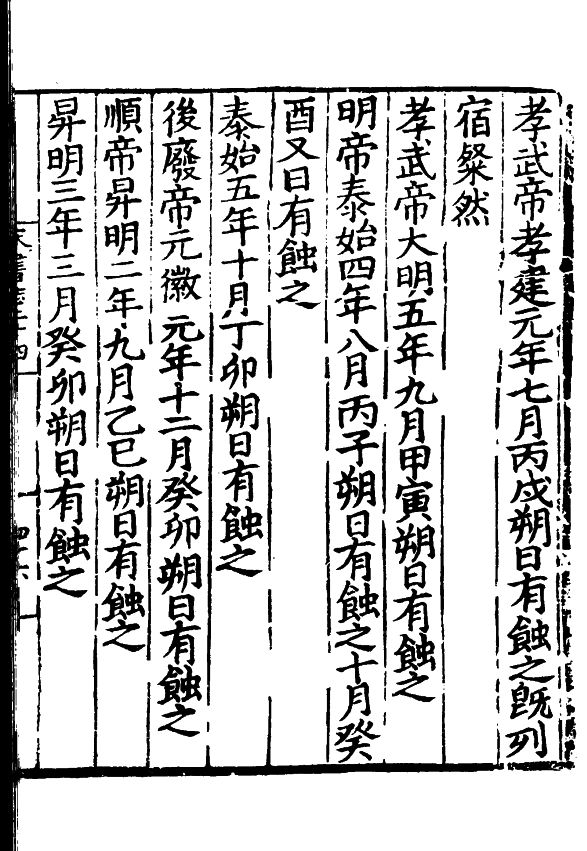 孝武帝孝建元年七月丙戌朔日有蝕之旣列
宿粲然
孝武帝大明五年九月甲寅朔日有蝕之
明帝泰始四年八月丙子朔日有蝕之十月癸
酉又日有蝕之
泰始五年十月丁卯朔日有蝕之
後廢帝元徽元年十二月癸卯朔日有蝕之
順帝昇明二年九月乙巳朔日有蝕之
昇明三年三月癸卯朔日有蝕之